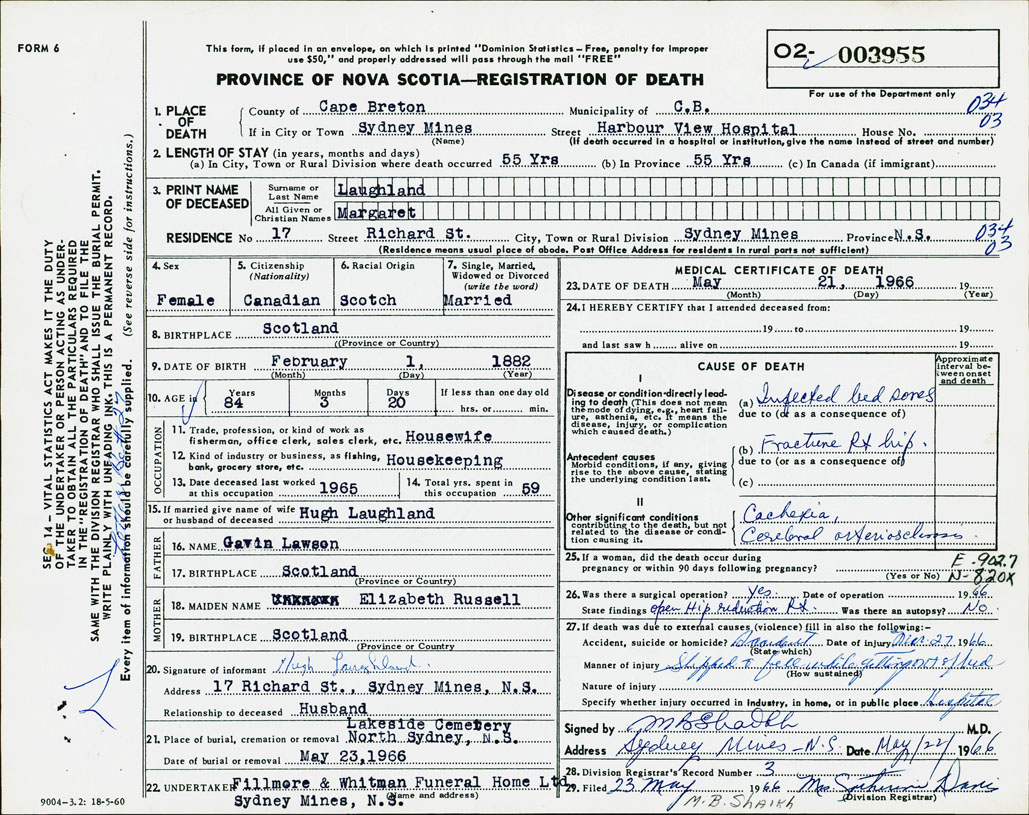 FORM 6
This form, if placed in an envelope, on which is printed "Dominion Statistics – Free, penalty for improper
use $50," and properly addressed will pass through the mail "FREE"
PROVINCE OF NOVA SCOTIA—REGISTRATION OF DEATH
02- 003955
For use of the Department only
034
03
1. PLACE OF DEATH
County of Cape Breton Municipality of C.B.
If in City or Town Sydney Mines Street Harbour View Hospital House No.
(Name) (If death occurred in a hospital or institution, give the name instead of street and number)
2. LENGTH OF STAY (in years, months and days)
(a) In City, Town or Rural Division where death occurred 55 Yrs (b) In Province 55 Yrs (c) In Canada (if immigrant)
3. PRINT NAME OF DECEASED
Surname or Last Name Laughland
All Given or Christian Names Margaret
RESIDENCE No 17 Street Richard St. City, Town or Rural Division Sydney Mines Province N.S.
034
03
(Residence means usual place of abode. Post Office Address for residents in rural parts not sufficient)
4. Sex
Female
5. Citizenship
(Nationality)
Canadian
6. Racial Origin
Scotch
7. Single, Married,
Widowed or Divorced
(write the word)
Married
8. BIRTHPLACE Scotland
(Province or Country)
9. DATE OF BIRTH February 1, 1882
(Month) (Day) (Year)
10. AGE in Years Months Days If less than one day old
84 3 20 hrs. or min.
OCCUPATION
11. Trade, profession, or kind of work as
fisherman, office clerk, sales clerk, etc. Housewife
12. Kind of industry or business, as fishing,
bank, grocery store, etc. Housekeeping
13. Date deceased last worked
at this occupation 1965
14. Total yrs. spent in
this occupation 59
15. If married give name of wife
or husband of deceased Hugh Laughland
FATHER
16. NAME Gavin Lawson
17. BIRTHPLACE Scotland
(Province or Country)
MOTHER
18. MAIDEN NAME Elizabeth Russell
19. BIRTHPLACE Scotland
(Province or Country)
20. Signature of informant Hugh Laughland
Address 17 Richard St., Sydney Mines, N.S.
Relationship to deceased Husband
Lakeside Cemetery
21. Place of burial, cremation or removal North Sydney, N.S.
Date of burial or removal May 23,1966
22. UNDERTAKER Fillmore & Whitman Funeral Home Ltd
(Name and address)
Sydney Mines, N.S.
9004-3.2: 18-5-60
MEDICAL CERTIFICATE OF DEATH
23. DATE OF DEATH May 21, 1966 19
(Month) (Day) (Year)
24. I HEREBY CERTIFY that I attended deceased from:
19 to 19
and last saw h alive on 19
CAUSE OF DEATH
Approximate
interval be-
tween onset
and death
I
Disease or condition directly lead-
ing to death (This does not mean
the mode of dying, e.g., heart fail-
ure, asthenia, etc. It means the
disease, injury, or complication
which caused death.)
(a) Infected bed sores
due to (or as a consequence of)
Antecedent causes
Morbid conditions, if any, giving
rise to the above cause, stating
the underlying condition last.
(b) Fracture Rt hip.
due to (or as a consequence of)
(c)
II
Other significant conditions
contributing to the death, but not
related to the disease or condi-
tion causing it.
Cachexia,
Cerebral arteriosclerosis
25. If a woman, did the death occur during
pregnancy or within 90 days following pregnancy?
(Yes or No)
E-902.7
N-820X
26. Was there a surgical operation? Yes. Date of operation 1966
State findings open Hip reduction Rt. Was there an autopsy? No
27. If death was due to external causes (violence) fill in also the following:–
Accident, suicide or homicide? Accident Date of injury Mar. 27, 1966
(State which)
Manner of injury Slipped & fell while getting out of bed
(How sustained)
Nature of injury
Specify whether injury occurred in industry, in home, or in public place Hospital
Signed by M B Shaikh M.D.
Address Sydney Mines - N.S. Date May/22/ 1966
28. Division Registrar's Record Number 3
29. Filed 23 May 1966 Mrs Davis
(Division Registrar)
M.B. SHAIKH
SEC. 14 – VITAL STATISTICS ACT MAKES IT THE DUTY
OF THE UNDERTAKER OR PERSON ACTING AS UNDER-
TAKER TO OBTAIN ALL THE PARTICULARS REQUIRED
IN THE "REGISTRATION OF DEATH" AND TO FILE THE
SAME WITH THE DIVISION REGISTRAR WHO SHALL ISSUE THE BURIAL PERMIT.
WRITE PLAINLY WITH UNFADING INK. THIS IS A PERMANENT RECORD.
Every item of information should be carefully supplied. (See reverse side for instructions.)